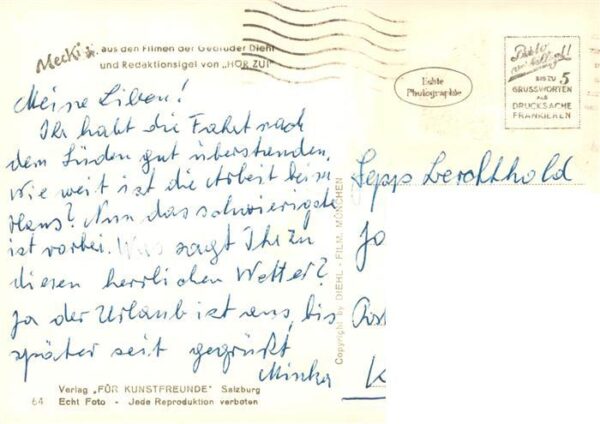 Mecki
aus den Filmen der Gebrüder Diehl
und Redaktionsigel von „HÖR ZU!"
Meine Lieben!
Ihr habt die Fahrt nach
dem Süden gut überstanden.
Wie weit ist die Arbeit beim
Haus? Nun das schwierigste
ist vorbei. Was sagt Ihr zu
diesen herrlichen Wetter?
Ja der Urlaub ist aus, bis
später seit gegrüßt
Verlag „FÜR KUNSTFREUNDE" Salzburg
64 Echt Foto - Jede Reproduktion verboten
Copyright by DIEHL-FILM, MÜNCHEN
Echte
Photographie
BIS ZU 5
GRUSSWORTEN
ALS
DRUCKSACHE
FRANKIEREN
Sepp Berchthold